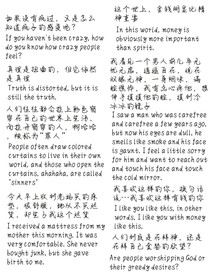 如果没有疯过，又是怎么
知道疯子的感觉吧？
If you haven't been crazy, how
do you know how crazy people
feel?
真理是扭曲的，但它依然
是真理
Truth is distorted, but it is
still the truth.
人们往往都会拉上彩色窗
帘
People often draw colored
curtains to live in their own
world, and those who open the
curtains, ahahaha, are called
"sinners"
今天早上收到老妈的床
垫，很舒服，她从不买垃
圾，却生了我这个垃圾
I received a mattress from my
mother this morning. It was
very comfortable. She never
bought junk, but she gave
birth to me.
这个世上，金钱明显比精
神重要
In this world, money is
obviously more important
than spirit.
我看见一个男人
I saw a man who was carefree
and carefree a few years ago,
but now his eyes are dull, he
smells like smoke and his face
is gaunt. I feel a little sorry
for him and want to reach out
and touch his face and touch
the cold mirror.
我喜欢这样的你，换句话
说
I like you like this, in other
words, I like you with money
like this.
人们到底是在拜神，还是
Are people worshipping God or
their greedy desires?